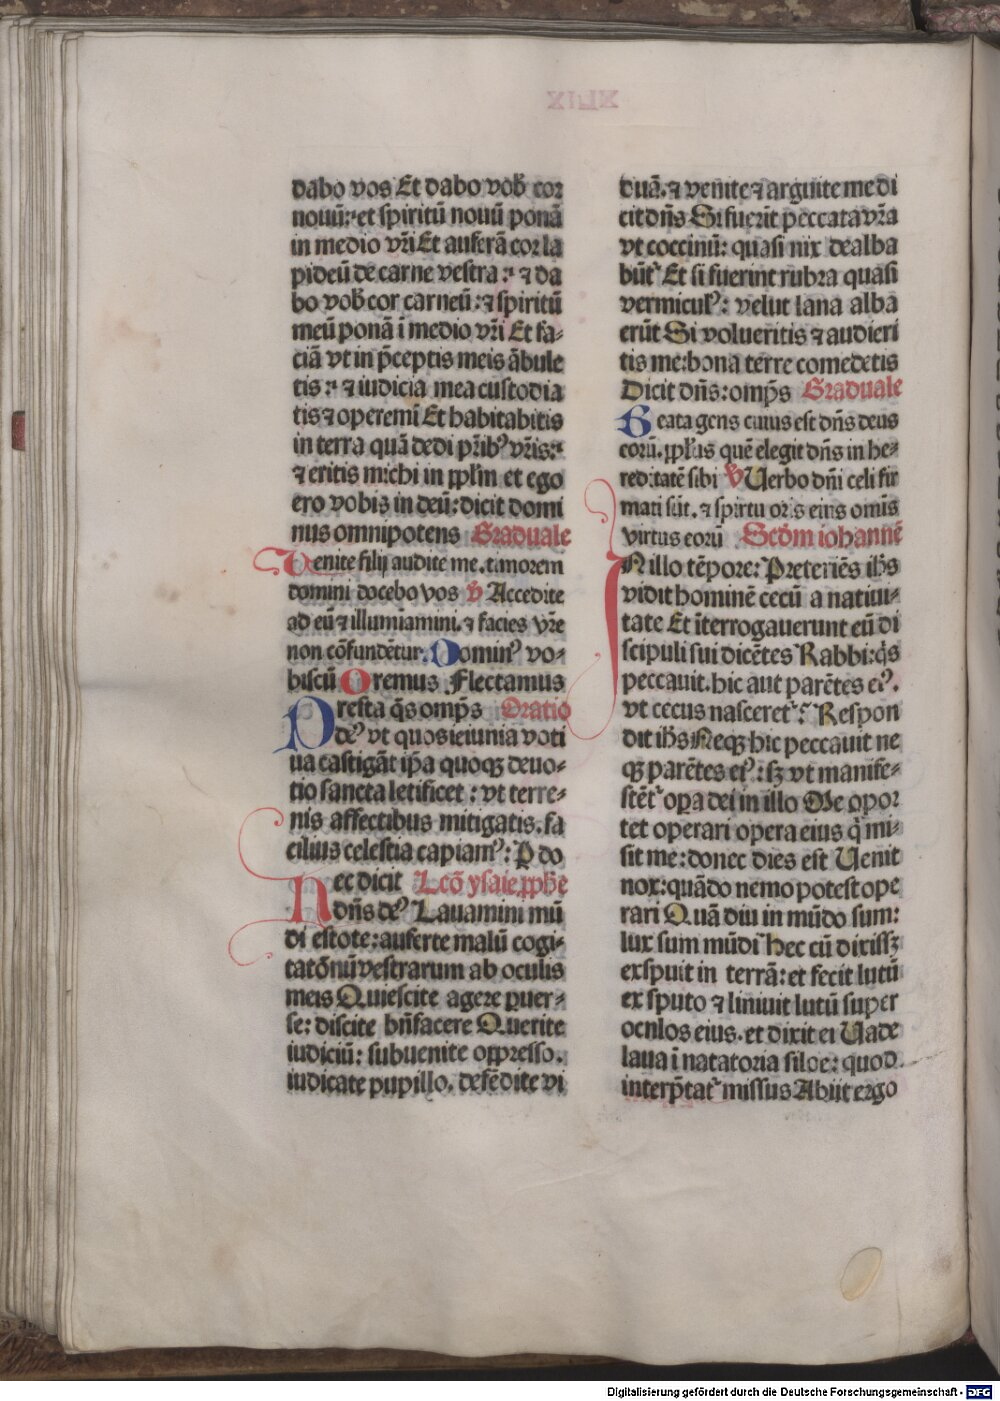 dabo vos Et dabo vob̄ cor
nouū: et spiritū nouū ponā
in medio vr̄i Et auferā cor la
pideū de carne vestra: ⁊ da
bo vob̄ cor carneū: ⁊ spiritū
meū ponā ī medio vr̄i Et fa-
ciā vt in p̄ceptis meis ābule
tis: ⁊ iudicia mea custodia
tis ⁊ operemī Et habitabitis
in terra quā dedi pr̄ibꝰ vr̄is:
⁊ eritis michi in ppl̄m et ego
ero vobis in deū: dicit domi
nus omnipotens Graduale
Venite filij audite me. timorem
domini docebo vos V̄ Accedite
ad eū ⁊ illumīamini. ⁊ facies vr̄e
non cōfundētur. Dominꝰ vo-
biscū Oremus Flectamus
Presta q̄s omp̄s Oratio
deꝰ vt quos ieiunia voti
ua castigāt ip̄a quoqꝫ deuo-
tio sancta letificet: vt terre-
nis affectibus mitigatis. fa
cilius celestia capiamꝰ: P̱ do
Hec dicit Lcō ysaie ꝓphe
dn̄s deꝰ Lauamini mū
di estote: auferte malū cogi-
tatōnū vestrarum ab oculis
meis Quiescite agere ꝑuer-
se: discite bn̄facere Querite
iudiciū: subuenite oppresso.
iudicate pupillo. defēdite vi
duā. ⁊ venite ⁊ arguite me di
cit dn̄s Si fuerīt peccata vr̄a
vt coccinū: quasi nix dealba
būt᷑ Et si fuerint rubra quasi
vermiculꝰ: velut lana alba
erūt Si volueritis ⁊ audieri
tis me: bona terre comedetis
Dicit dn̄s: omp̄s Graduale
Beata gens cuius est dn̄s deus
eorū. ppl̄us quē elegit dn̄s in he-
reditatē sibi V̄ Uerbo dn̄i celi fir
mati sūt. ⁊ spiritu oris eius om̄is
virtus eorū Scd̄m iohannē
IN illo tēpore: Preteriēs ih̄s
vidit hominē cecū a natiui-
tate Et īterrogauerunt eū di
scipuli sui dicētes Rabbi: q̄s
peccauit. hic aut parētes eiꝰ.
vt cecus nasceret᷑: Respon
dit ih̄s Neqꝫ hic peccauit ne
qꝫ parētes eiꝰ: sꝫ vt manife-
stēt᷑ oꝑa dei in illo Me opor
tet operari opera eius q̄ mi-
sit me: donec dies est Uenit
nox: quādo nemo potest ope
rari Quā diu in mūdo sum:
lux sum mūdi Hec cū dixissꝫ
exspuit in terrā: et fecit lutū
ex sputo ⁊ liniuit lutū super
ocnlos eius. et dixit ei Uade
laua ī natatoria siloe: quod
interp̄tat᷑ missus Abijt ergo
Digitalisierung gefördert durch die Deutsche Forschungsgemeinschaft - DFG